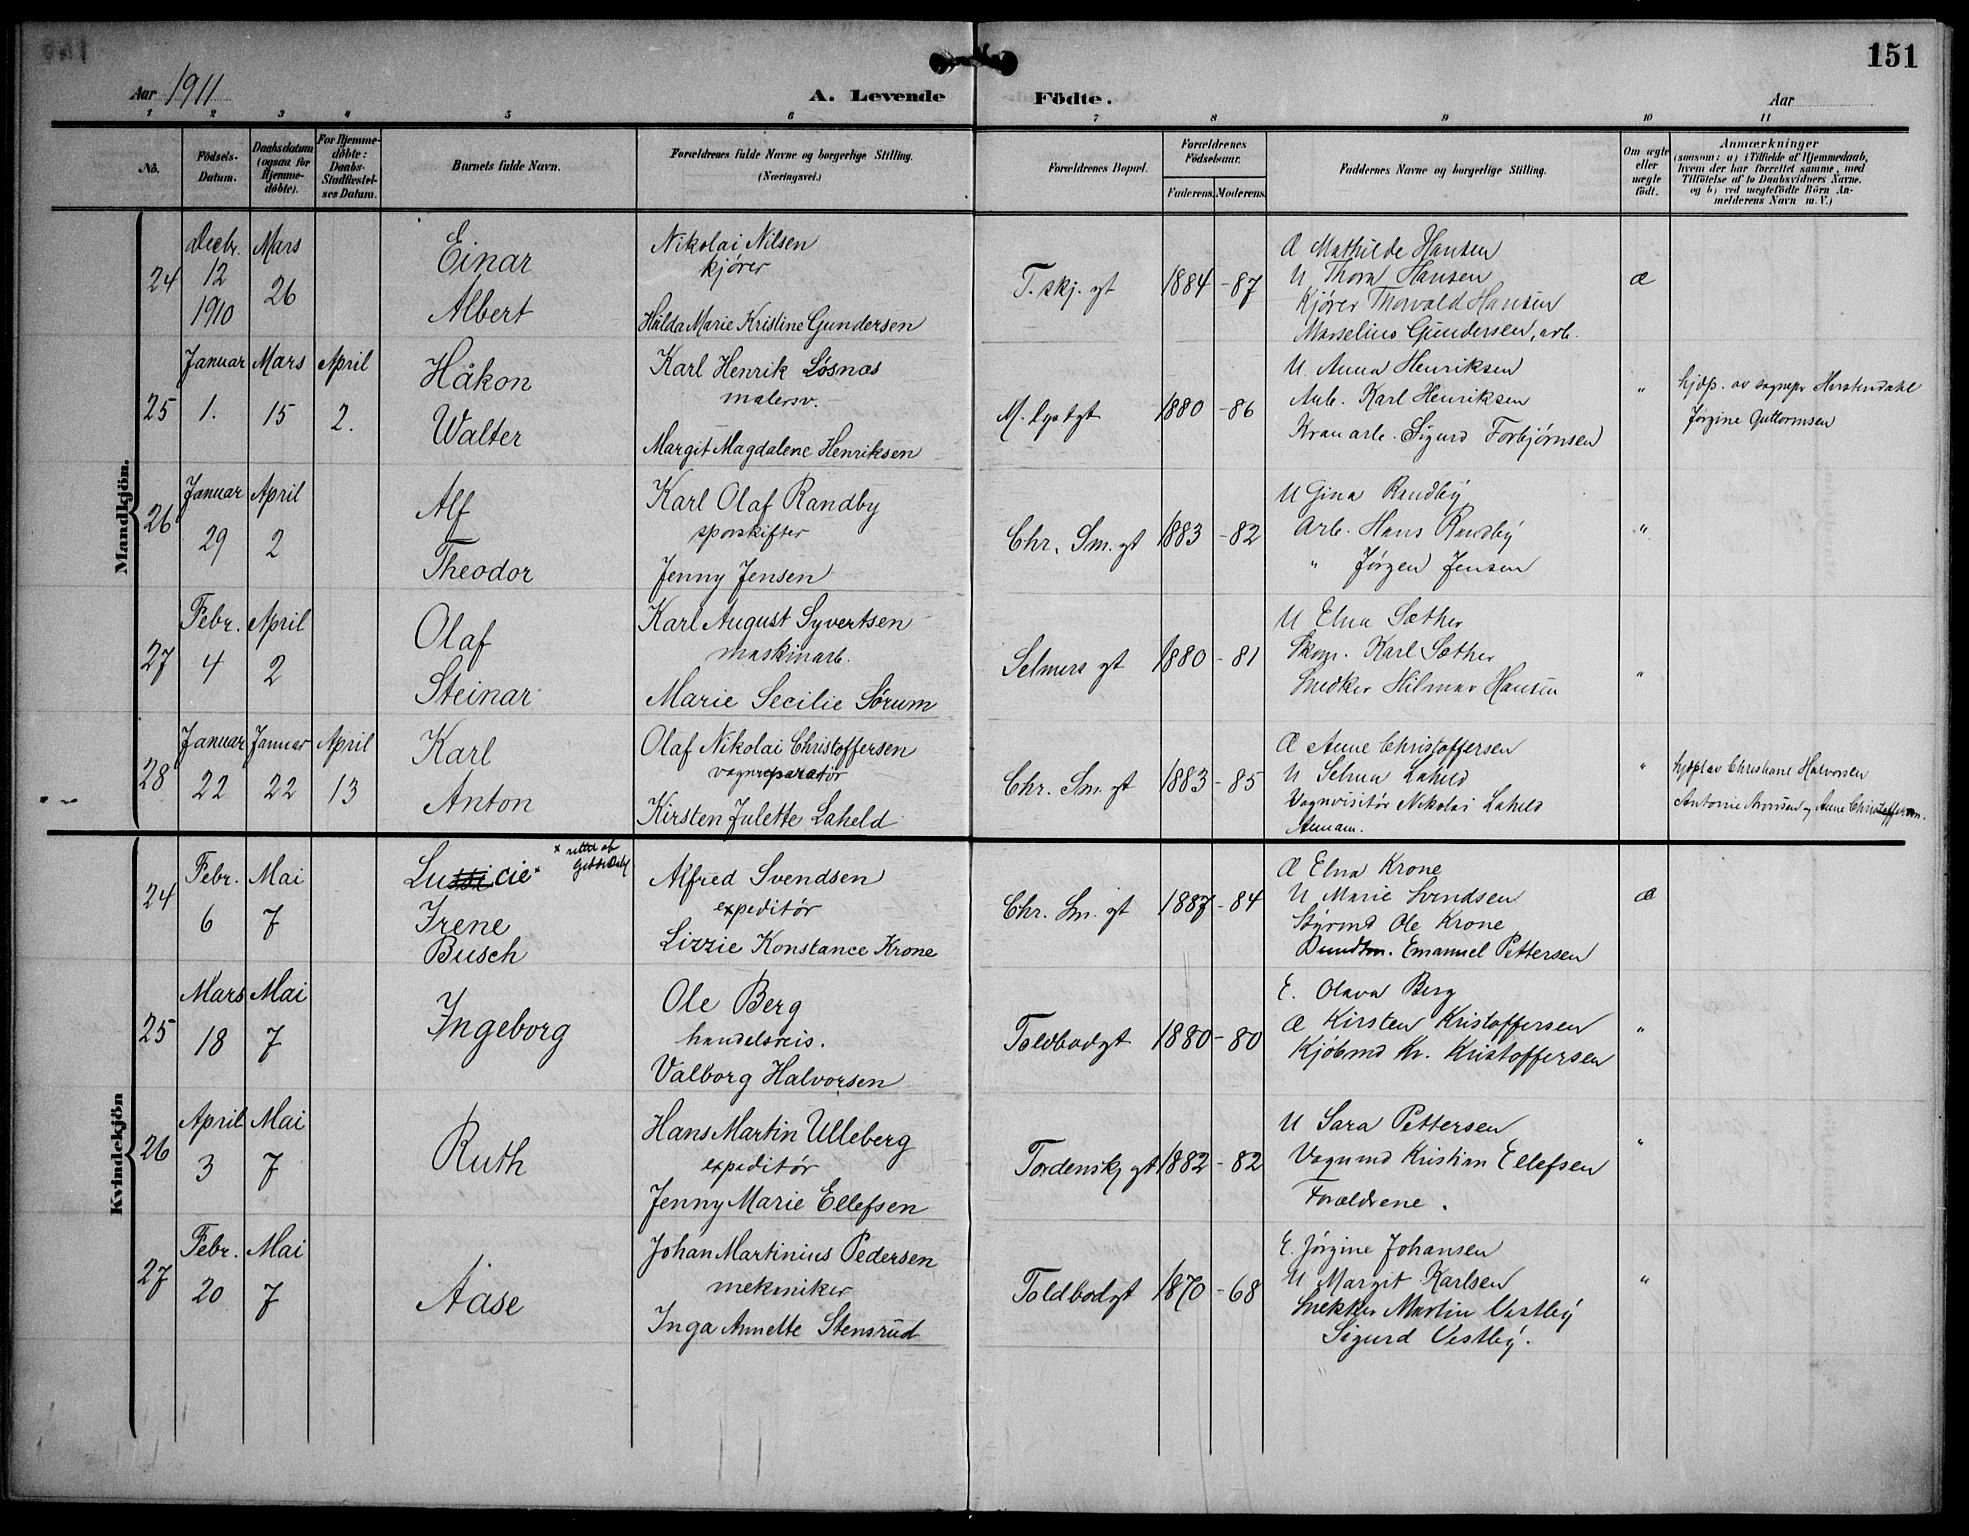 151
Aar 1911
A. Levende Födte.
Aar
1 2 3 4 5 6 7 8 9 10 11
No.
Födsels-Datum.
Daabsdatum (ogsaa for Hjemme-döbte).
For Hjemme-döbte: Daabs-Stadfæstel-ses Datum.
Barnets fulde Navn.
Forældrenes fulde Navne og borgerlige Stilling.
(Næringsvei.)
Forældrenes Bopæl.
Forældrenes Födselsaar.
Faderens. Moderens.
Faddernes Navne og borgerlige Stilling.
Om ægte eller uægte födt.
Anmærkninger
(saasom: a) i Tilfælde af Hjemmedaab,
hvem der har forrettet samme, med
Tilföielse af to Daabsvidners Navne.
og b) ved uægtefödte Börn An-
melderens Navn m. V.)
Mandkjön.
24
Decbr. 12 1910
Mars 26
Einar
Albert
Nikolai Nilsen
kjører
Hilda Marie Kristine Gundersen
T. skj. gt
1884 - 87
Æ Mathilde Hansen
U Thora Hansen
Kjører Thorvald Hansen
Marselius Gundersen, arb.
æ
25
Januar 1.
Mars 15
April 2.
Håkon
Walter
Karl Henrik Løsnæs
malersv.
Margit Magdalene Henriksen
M. Lystgt
1880 - 86
U. Anna Henriksen
Arb. Karl Henriksen
Kranarb. Sigurd Torbjørnsen
"
hjdp. av sognepr
Jørgine Guttormsen
26
Januar 29
April 2
Alf
Theodor
Karl Olaf Randby
sporskifter
Jenny Jensen
Chr. Sm. gt
1883 - 82
U Gina Randby
Arb. Hans Randby
" Jørgen Jensen
"
27
Febr. 4
April 2
Olaf
Steinar
Karl August Syvertsen
maskinarb.
Marie Secilie Sørum
Selmers gt
1880 - 81
U Elna Sæther
Skom. Karl Sæther
Snedker Hilmar Hansen
"
28
Januar 22
Januar 22
April 13
Karl
Anton
Olaf Nikolai Christoffersen
vognreparatør
Kirsten Julette Laheld
Chr. Sm. gt
1883 - 85
Æ Anne Christoffersen
U Selma Laheld
Vognvisitør Nikolai Laheld
"
hjdpt av Christiane Halvorsen
Antonie og Anne Christoffersen.
Kvindekjön
24
Febr. 6
Mai 7
Lussicie x
x rettet af
Irene
Busch
Alfred Svendsen
expeditør
Lizzie Konstance Krone
Chr. Sm. gt
1887 - 84
Æ Elna Krone
U Marie Svendsen
Styrmd Ole Krone
Emanuel Pettersen
æ
25
Mars 18
Mai 7
Ingeborg
Ole Berg
handelsreis.
Valborg Halvorsen
Toldbodgt
1880 - 80
E. Olava Berg
Æ Kirsten Kristoffersen
Kjøbmd Kr. Kristoffersen
"
26
April 3
Mai 7
Ruth
Hans Martin Ulleberg
expeditør
Jenny Marie Ellefsen
Tordenskj gt
1882 - 82
U Sara Pettersen
Vognmd Kristian Ellefsen
Forældrene.
"
27
Febr. 20
Mai 7
Aase
Johan Martinius Pedersen
mekaniker
Inga Annette Stensrud
Toldbodgt
1870 - 68
E. Jørgine Johansen
U Margit Karlsen
Snekker Martin Vestby
Sigurd Vestby.
"